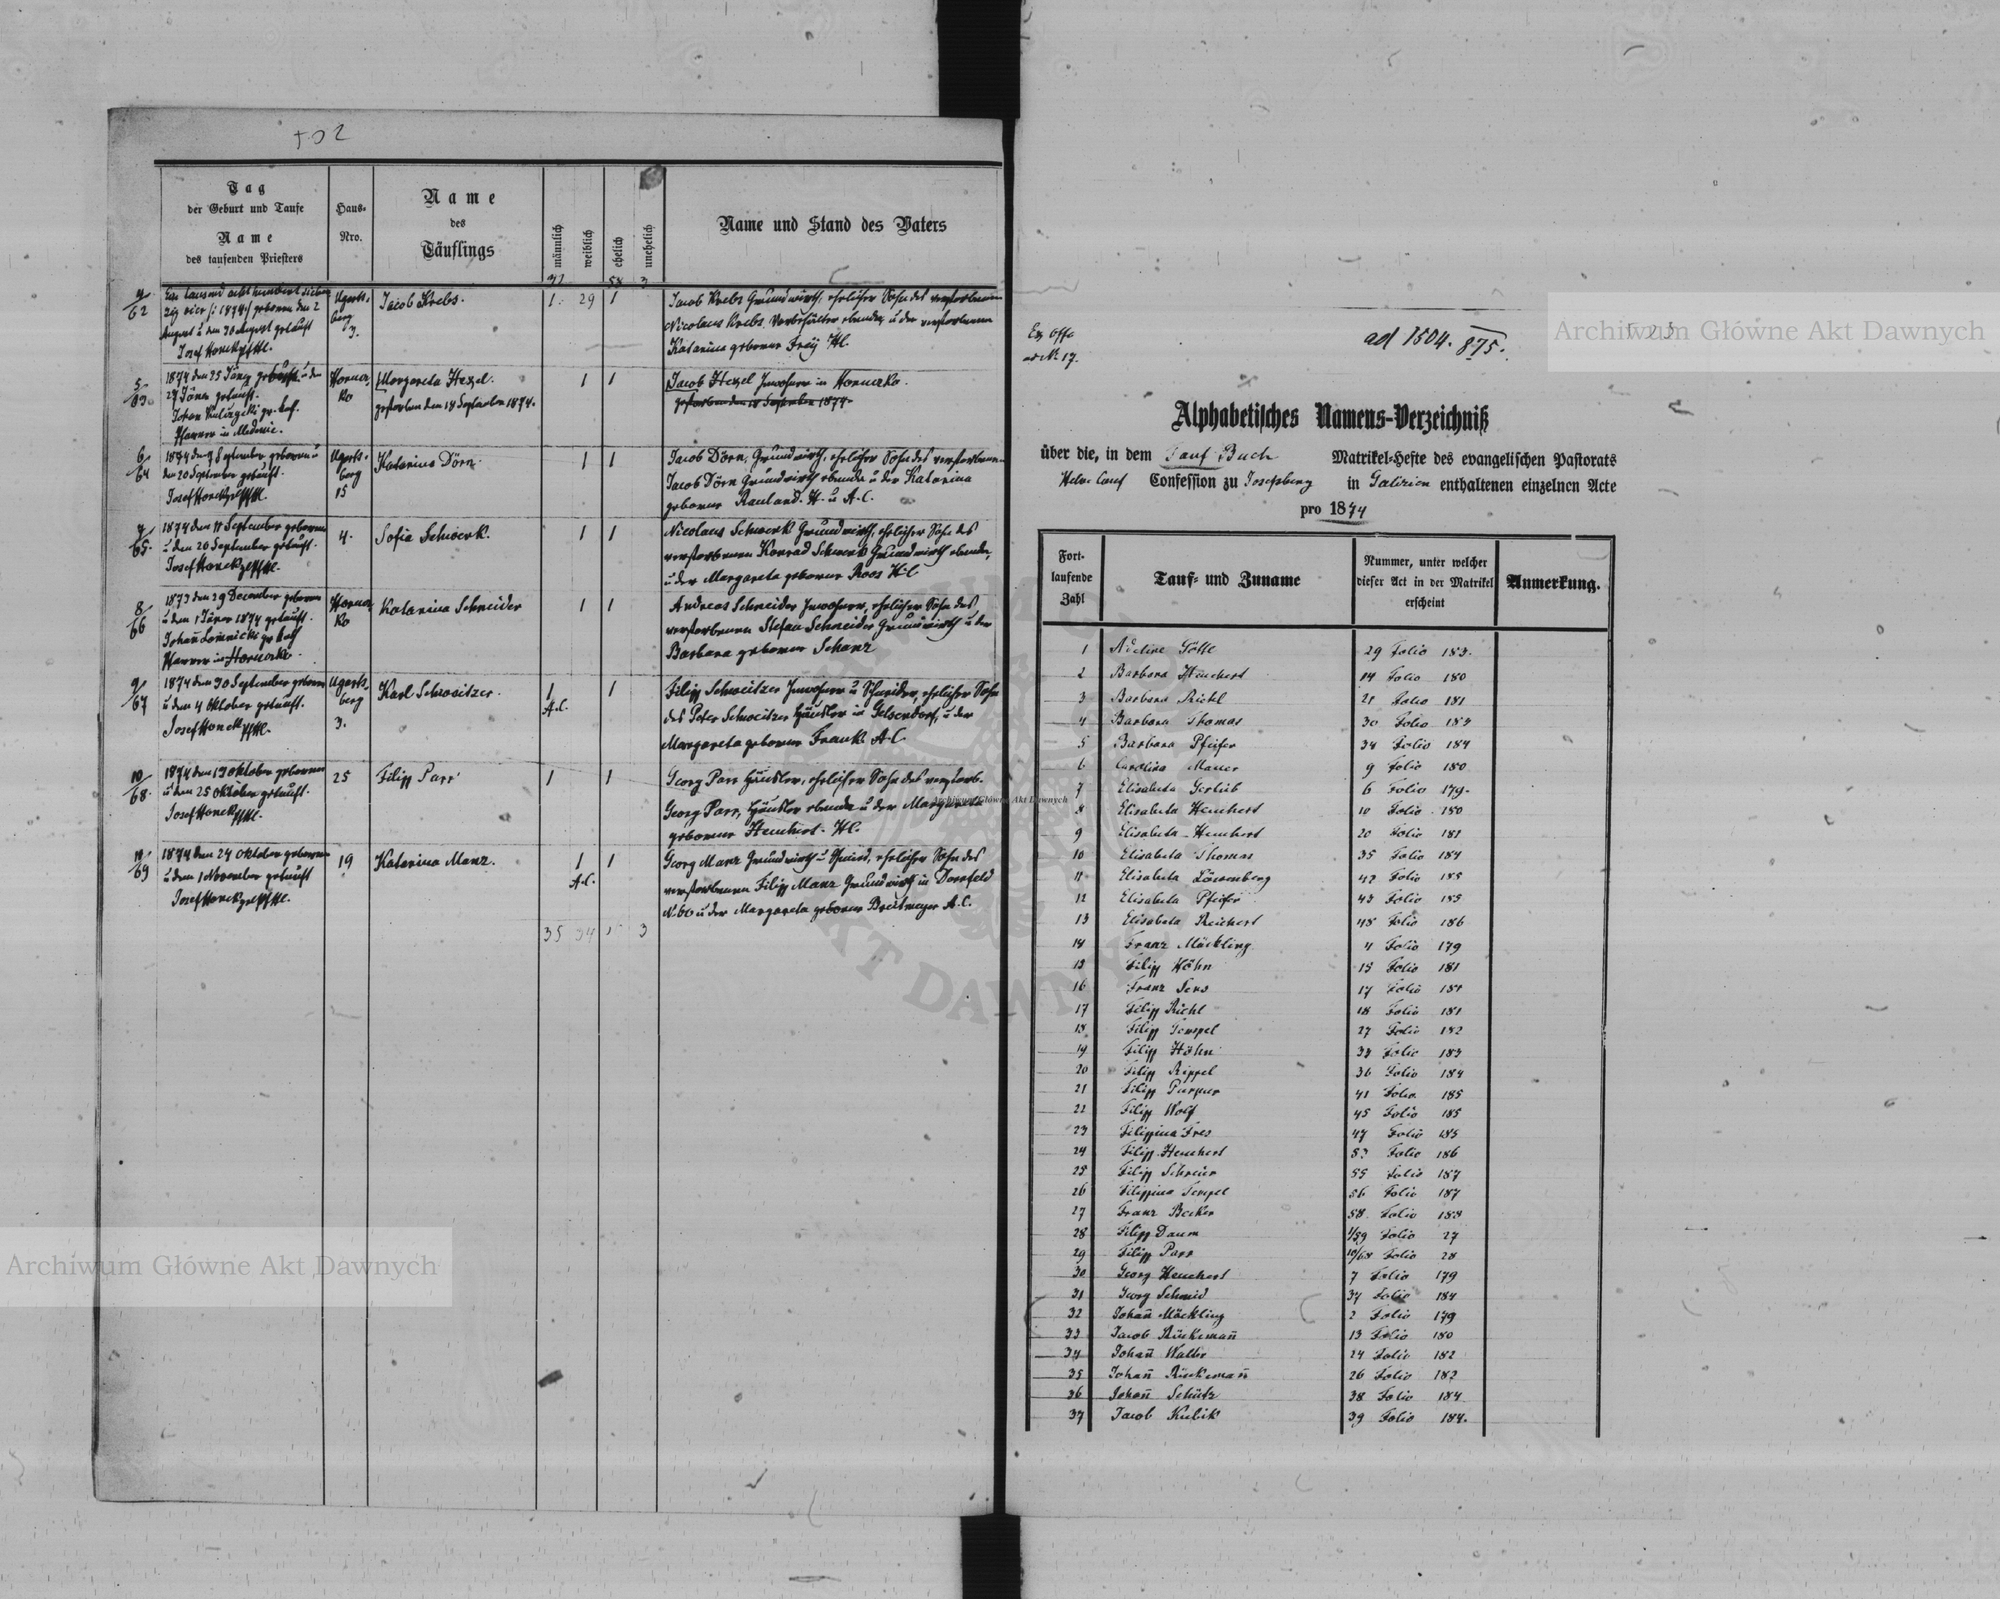 Tag
der Geburt und Taufe
Name
des taufenden Priesters
Haus-
Nro.
Name
des
Täuflings
männlich
weiblich
ehelich
unehelich
Name und Stand des Vaters
4/62
Ein tausend acht hundert sieben
zig vier /: 1874 :/ geboren den 2
August u den 30 August getauft
Josef Honek
Ugarts-
berg
3.
Jacob Krebs.
1. 29 1
Jacob Krebs Grundwirth, ehelicher Sohn des verstorbenen
Nicolaus Krebs, ebenda u der verstorbenen
Katarina geborner Frey H.C.
5/63
1874 den 25 Jäner u den
27 Jäner getauft.
Pfarrer in Medenic.
Horucz-
ko
Margareta Hexel.
gestorben den 18 September 1874.
1 1
Jacob Hexel Inwohner in Horucko.
gestorben den 18 September 1874.
6/64
1874 den 9 September geboren u
den 20 September getauft.
Josef Honek
Ugarts-
berg
15
Katarina Dörn.
1 1
Jacob Dörn, Grundwirth, ehelicher Sohn des verstorbenen
Jacob Dörn Grundwirth ebenda u der Katarina
geborner Rauland. H. u A.C.
7/65.
1874 den 11 September geboren
u den 20 September getauft.
Josef Honek
4.
Sofia Schwerk.
1 1
Nicolaus Schwerk Grundwirth, ehelicher Sohn des
verstorbenen Konrad Schwerk Grundwirth ebenda,
u der Margareta geborner Roos H.C
8/66
1873 den 29 December geboren
u den 1 Jäner 1874 getauft.
Pfarrer in Horucko.
Horucz-
ko
Katarina Schneider
1 1
Andreas Schneider Inwohner, ehelicher Sohn des
verstorbenen Stefan Schneider Grundwirth u der
Barbara geborner Schanz
9/67
1874 den 30 September geboren
u den 4 Oktober getauft.
Josef Honek
Ugarts-
berg
3.
Karl Schweitzer.
1 1
A.C.
Filipp Schweitzer Inwohner u Schneider, ehelicher Sohn
des Peter Schweitzer Häusler in Gelsendorf, u der
Margareta geborner Frank A.C.
10/68.
1874 den 19 Oktober geboren
u den 25 Oktober getauft.
Josef Honek
25
Filipp Parr
1 1
Georg Parr Häusler, ehelicher Sohn des verstorb.
Georg Parr, Häusler ebenda u der Margareta
geborner Heuchert. H.C.
11/69
1874 den 24 Oktober geboren
u den 1 November getauft
Josef Honek
19
Katarina Manz.
1 1
A.C.
Georg Manz Grundwirth u Schmied, ehelicher Sohn des
verstorbenen Filipp Manz Grundwirth in Dornfeld
N. 60 u der Margareta geborner Breitmeyer A.C.
35 34 3
Ex Offo
ad 1504. 875.
Alphabetisches Namens-Verzeichniß
über die, in dem Tauf Buch Matrikel-Hefte des evangelischen Pastorats
Helv. Conf Confession zu Josefsberg in Galizien enthaltenen einzelnen Acte
pro 1874
Fort-
laufende
Zahl
Tauf- und Zuname
Nummer, unter welcher
dieser Act in der Matrikel
erscheint
Anmerkung.
1 Adeline Göttl 29 Folio 183.
2 Barbara Heuchert 14 Folio 180
3 Barbara Richl 21 Folio 181
4 Barbara Thomas 30 Folio 183
5 Barbara Pfeifer 34 Folio 184
6 Carolina Mauer 9 Folio 180
7 Elisabeta Gerlieb 6 Folio 179.
8 Elisabeta Heuchert 10 Folio 180
9 Elisabeta Heuchert 20 Folio 181
10 Elisabeta Thomas 35 Folio 184
11 Elisabeta Löwenberg 42 Folio 185
12 Elisabeta Pfeifer 43 Folio 185
13 Elisabeta Reichert 48 Folio 186
14 Franz Mäckling 4 Folio 179
15 Filipp Höhn 15 Folio 181
16 Franz Sens 17 Folio 181
17 Filipp Richl 18 Folio 181
18 Filipp Tempel 27 Folio 182
19 Filipp Höhn 33 Folio 183
20 Filipp Rippel 36 Folio 184
21 Filipp 41 Folio 185
22 Filipp Wolf 45 Folio 185
23 Filippina Fres 47 Folio 185
24 Filipp Heuchert 53 Folio 186
25 Filipp Schreier 55 Folio 187
26 Filippina Tempel 56 Folio 187
27 Franz Becker 58 Folio 188
28 Filipp Daum 1/59 Folio 27
29 Filipp Parr 10/68 Folio 28
30 Georg Heuchert 7 Folio 179
31 Georg Schmid 37 Folio 184
32 Johañ Mäckling 2 Folio 179
33 Jacob Rückemañ 13 Folio 180
34 Johañ Walter 24 Folio 182
35 Johañ Rückemañ 26 Folio 182
36 Johañ Schütz 38 Folio 184
37 Jacob Kubik 39 Folio 184.
Archiwum Główne Akt Dawnych
Archiwum Główne Akt Dawnych
Archiwum Główne Akt Dawnych